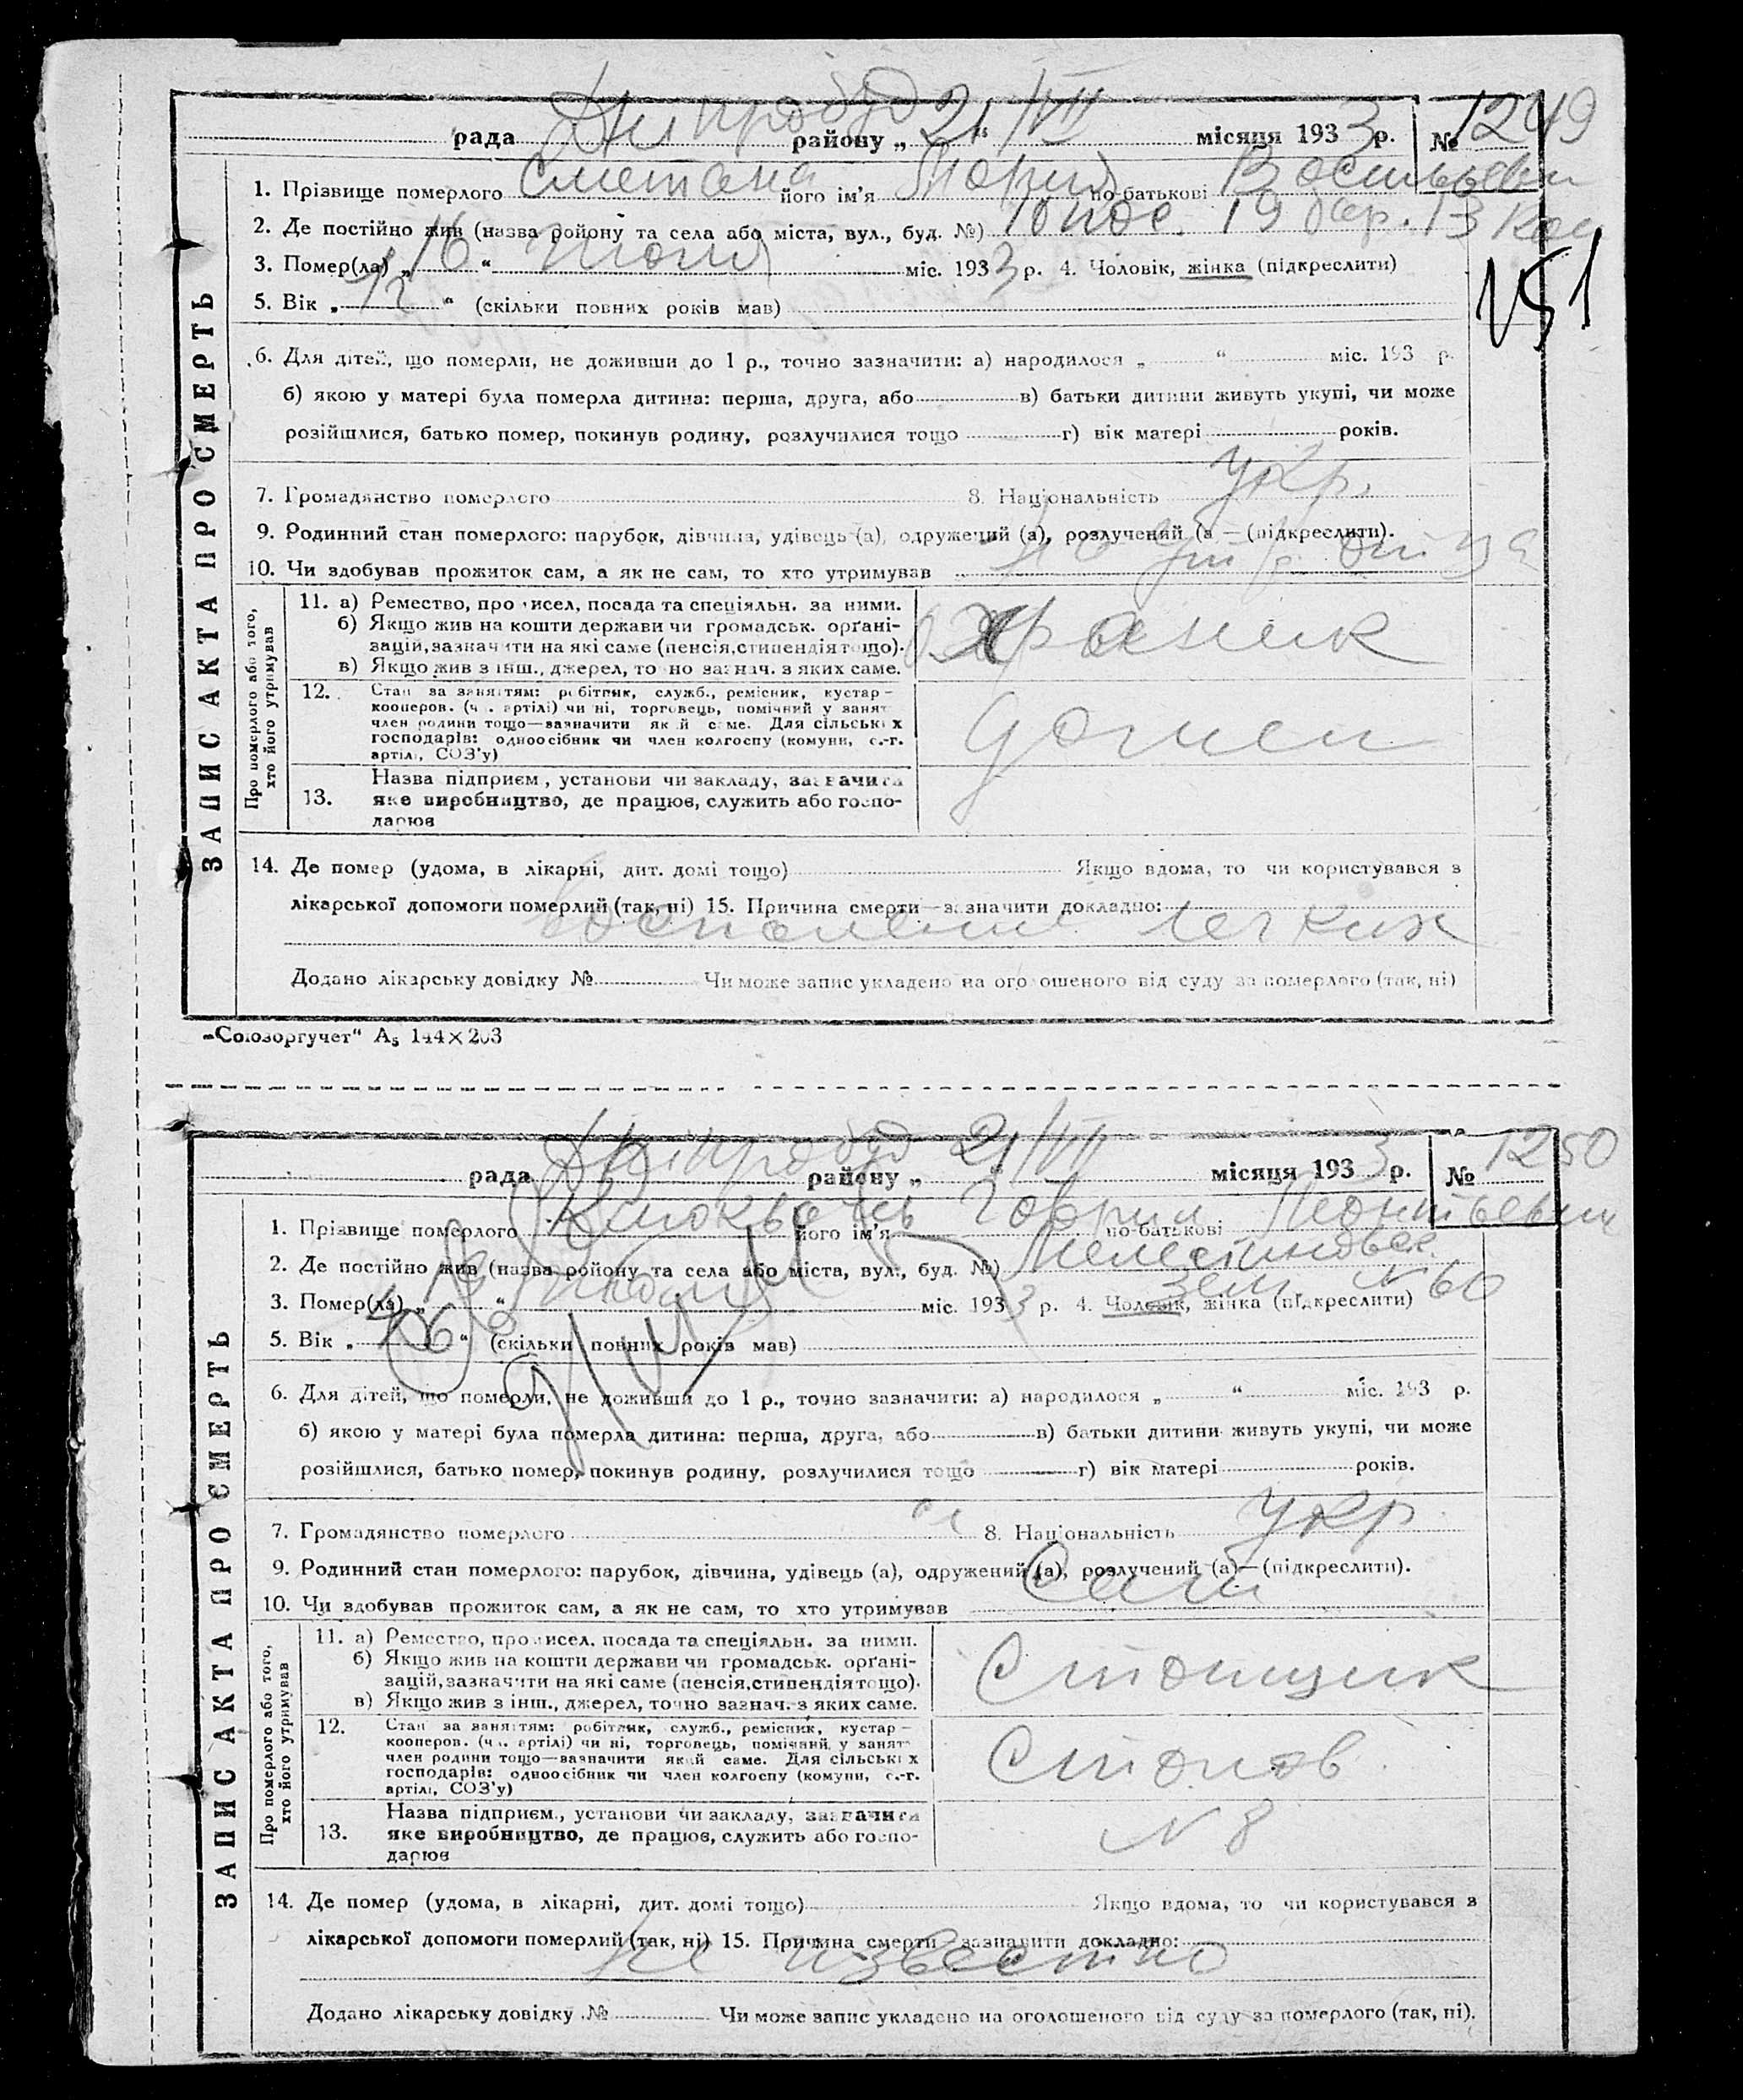 рада Дніпробуд району „ 21 “ /VII місяця 1933 р. № 1249
1. Прізвище померлого Сметана його ім’я Мария по-батькові Васильевн
2. Де постійно жив (назва ройону та села або міста, вул., буд. №) 10 пос. 19 бар. 13 ком
3. Помер(ла) „ 16 “ июля міс. 1933 р. 4. Чоловік, жінка (підкреслити)
151
5. Вік „ 12 “ (скільки повних років мав)
6. Для дітей, що померли, не доживши до 1 р., точно зазначити: а) народилося „ “ міс. 193 р.
б) якою у матері була померла дитина: перша, друга, або в) батьки дитини живуть укупі, чи може
розійшлися, батько помер, покинув родину, розлучилися тощо г) вік матері років.
7. Громадянство померлого 8. Національність укр.
9. Родинний стан померлого: парубок, дівчина, удівець (а), одружений (а), розлучений (а — (підкреслити).
10. Чи здобував прожиток сам, а як не сам, то хто утримував
ЗАПИС АКТА ПРО СМЕРТЬ
Про померлого або того, хто його утримував
11. а) Ремество, промисел, посада та спеціяльн. за ними.
б) Якщо жив на кошти держави чи громадськ. орґані-
зацій, зазначити на які саме (пенсія, стипендія тощо).
в) Якщо жив з інш., джерел, точно зазнач. з яких саме.
охраник
12. Стан за заняттям: робітник, служб., ремісник, кустар –
кооперов. (чл. артілі) чи ні, торговець, помічний у занят
член родини тощо—зазначити який саме. Для сільських
господарів: одноосібник чи член колгоспу (комуни, с.-г.
артілі, СОЗ’у)
13. Назва підприєм., установи чи закладу, зазначити
яке виробництво, де працює, служить або госпо-
дарює
14. Де помер (удома, в лікарні, дит. домі тощо) Якщо вдома, то чи користувався з
лікарської допомоги померлий (так, ні) 15. Причина смерти—зазначити докладно:
Воспаление легких
Додано лікарську довідку № Чи може запис укладено на оголошеного від суду за померлого (так, ні)
„Союзоргучет“ А₅ 144×203
рада Дніпробуд району „ 21 “ /VII місяця 1933 р. № 1250
1. Прізвище померлого його ім’я Гаврил по-батькові Леонтьевич
2. Де постійно жив (назва ройону та села або міста, вул., буд. №)
3. Помер(ла) „ “ июля міс. 1933 р. 4. Чоловік, жінка (підкреслити) зем N 60
5. Вік „ “ (скільки повних років мав)
6. Для дітей, що померли, не доживши до 1 р., точно зазначити: а) народилося „ “ міс. 193 р.
б) якою у матері була померла дитина: перша, друга, або в) батьки дитини живуть укупі, чи може
розійшлися, батько помер, покинув родину, розлучилися тощо г) вік матері років.
7. Громадянство померлого 8. Національність укр
9. Родинний стан померлого: парубок, дівчина, удівець (а), одружений (а), розлучений (а)—(підкреслити).
10. Чи здобував прожиток сам, а як не сам, то хто утримував Сам
ЗАПИС АКТА ПРО СМЕРТЬ
Про померлого або того, хто його утримував
11. а) Ремество, промисел, посада та спеціяльн. за ними.
б) Якщо жив на кошти держави чи громадськ. орґані-
зацій, зазначити на які саме (пенсія, стипендія тощо).
в) Якщо жив з інш., джерел, точно зазнач. з яких саме.
12. Стан за заняттям: робітник, служб., ремісник, кустар –
кооперов. (чл. артілі) чи ні, торговець, помічний у занят
член родини тощо—зазначити який саме. Для сільських
господарів: одноосібник чи член колгоспу (комуни, с.-г.
артілі, СОЗ’у)
Столов
13. Назва підприєм., установи чи закладу, зазначити
яке виробництво, де працює, служить або госпо-
дарює
N 8
14. Де помер (удома, в лікарні, дит. домі тощо) Якщо вдома, то чи користувався з
лікарської допомоги померлий (так, ні) 15. Причина смерти зазначити докладно:
не известно
Додано лікарську довідку № Чи може запис укладено на оголошеного від суду за померлого (так, ні).